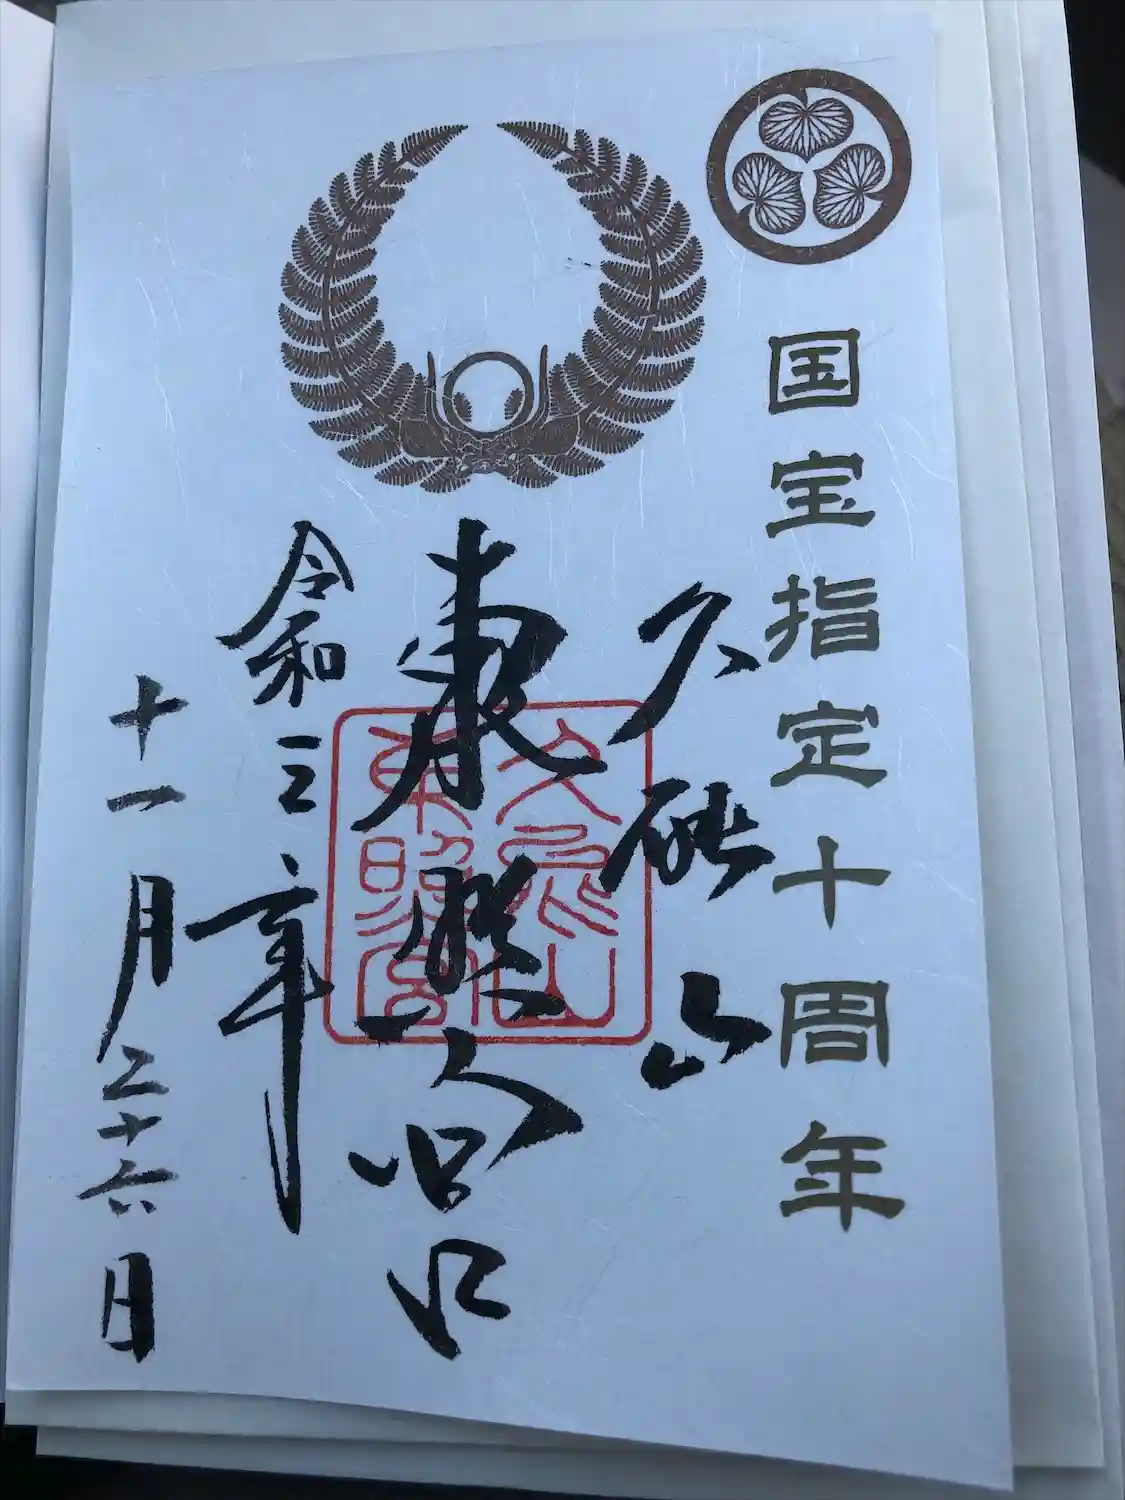 国宝指定十周年
久能山
東照宮
久能山
東照宮
令和三年
十一月二十六日